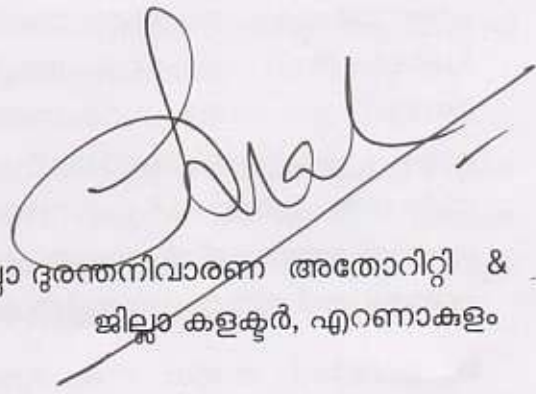 ദുരന്തനിവാരണ അതോറിറ്റി &
ജില്ലാ കളക്ടർ, എറണാകുളം